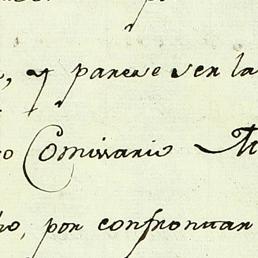 , y parece ser la
o Comissario
ho, por confrontar